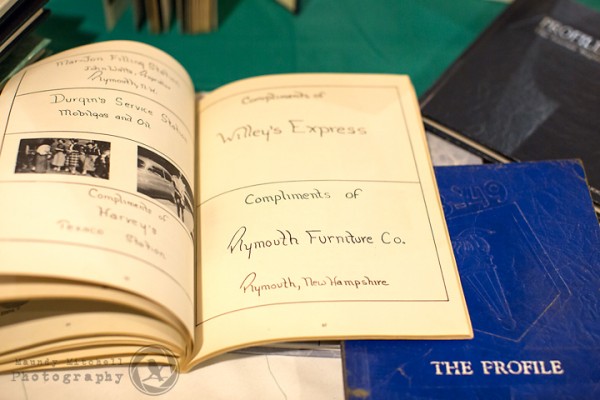 Mar-Jon Filling Station
Plymouth, N.H.
Durgin's Service Station
Mobilgas and Oil
Compliments of
Harvey's
Texaco Station
Compliments of
Willey's Express
Compliments of
Plymouth Furniture Co.
Plymouth, New Hampshire
PROFILE
8-49
THE PROFILE
Maundy Mitchell
Photography